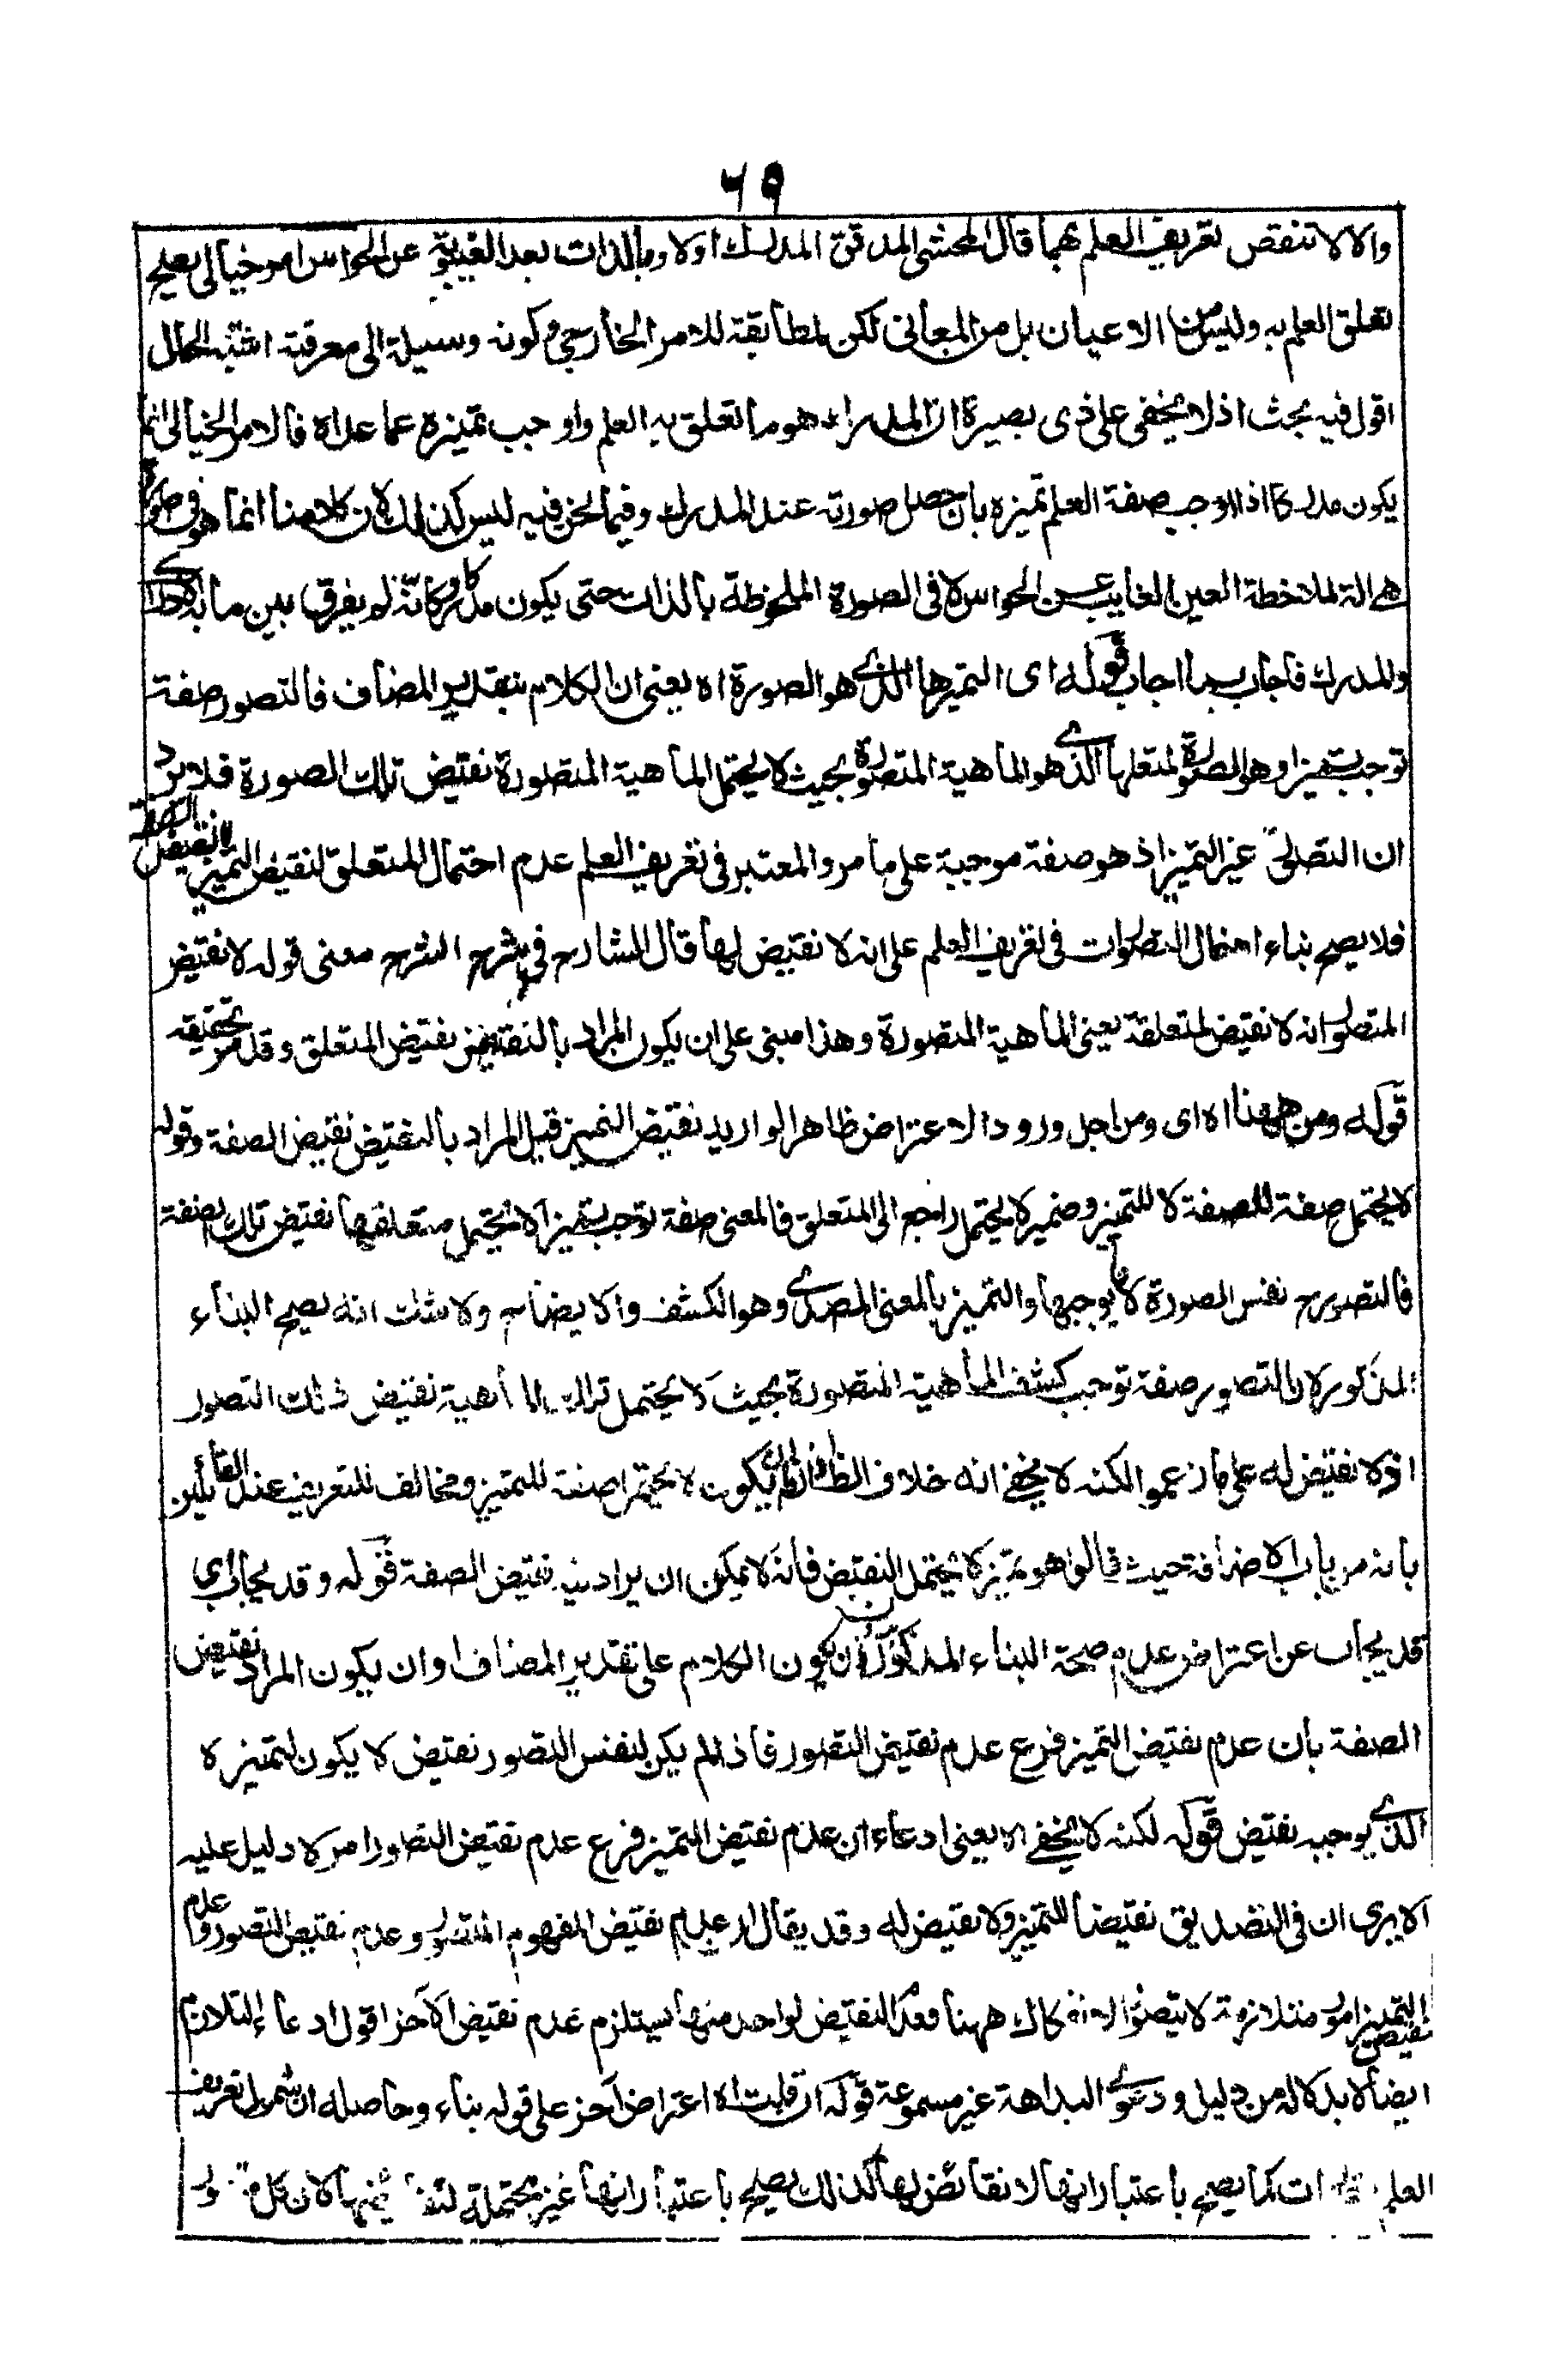 ٦٩
والا لانتقض تعريف العلم بهما قال المحشي المدقق المدرك اولا وبالذات بعد الغيبوبة عن الحواس امر خيالي يصلح
تعلق العلم به وليس من الاعيان بل من المعاني لكن لمطابقة للامر الخارجي وكونه وسيلة الى معرفته اشتبه الحال
اقول فيه بحث اذ لا يخفى على ذي بصيرة ان المدرك هو ما تعلق به العلم واوجب تميزه عما عداه فالامر الخيالي انما
يكون مدركا اذا اوجب صفة العلم تميزه بان حصل صورته عند المدرك وفيما نحن فيه ليس كذلك لان كلامنا انما هو في صورة
هي الة لملاحظة العين الغايب عن الحواس لا في الصورة الملحوظة بالذات حتى يكون مدركا وكانه لم يفرق بين ما به الادراك
والمدرك فاجاب بما اجاب قوله اى التميز ها الذى هو الصورة اه يعنى ان الكلام بتقدير المضاف فالتصور صفة
توجب تميزا وهو الصورة لمتعلقها الذى هو الماهية المتصورة بحيث لا يحتمل الماهية المتصورة نقيض تلك الصورة فلا يرد
ان التصور ح غير التميز اذ هو صفة موجبة على ما مر والمعتبر في تعريف العلم عدم احتمال المتعلق لنقيض التميز لا نقيض الصفة
فلا يصح بناء اشتمال التصورات في تعريف العلم على انه لا نقيض لها قال الشارح في شرح الشرح معنى قوله لا نقيض
للتصور انه لا نقيض لمتعلقه يعنى الماهية المتصورة وهذا مبنى على ان يكون المراد بالنقيض نقيض المتعلق وقد مر تحقيقه
قوله ومن ههنا اه اى ومن اجل ورود الاعتراض ظاهرا لو اريد نقيض التميز قيل المراد بالنقيض نقيض الصفة وقوله
لا يحتمل صفة للصفة لا للتميز وضمير لا يحتمل راجع الى المتعلق فالمعنى صفة توجب تميزا لا يحتمل متعلقها نقيض تلك الصفة
فالتصور ح نفس الصورة لا ما يوجبها والتميز بالمعنى المصدرى وهو الكشف والايضاح ولا شك انه يصح البناء
المذكور لان التصور صفة توجب كشف الماهية المتصورة بحيث لا يحتمل تلك الماهية نقيض ذلك التصور
اذ لا نقيض له على ما زعموا لكنه لا يخفى انه خلاف الظاهر ان يكون لا يحتمل صفة للتميز ومخالف للتعريف عند القائلين
بانه من باب الاضافة حيث قالوا هو تميز لا يحتمل النقيض فانه لا يمكن ان يراد فيه نقيض الصفة قوله وقد يجاب اى
قد يجاب عن اعتراض عدم صحة البناء المذكور من دون ان يكون الكلام على تقدير المضاف او ان يكون المراد نقيض
الصفة بان عدم نقيض التميز فرع عدم نقيض التصور فاذا لم يكن لنفس التصور نقيض لا يكون لتميزه
الذى يوجبه نقيض قوله لكنه لا يخفى اه يعنى ادعاء ان عدم نقيض التميز فرع عدم نقيض التصور امر لا دليل عليه
الا يرى ان في التصديق نقيضا للتميز ولا نقيض له وقد يقال ان عدم نقيض المفهوم المتصور وعدم نقيض التصور وعدم
نقيض التميز امور متلازمة لا يتصور الانفكاك ههنا فعدم النقيض لواحد منها يستلزم عدم نقيض الآخر اقول ادعاء التلازم
ايضا لا بد له من دليل ودعوى البداهة غير مسموعة قوله ان قلت اه اعتراض آخر على قوله بناء وحاصله ان شمول تعريف
العلم ات كما يصح باعتبار انها لا نقائض لها كذلك يصلح باعتبار انها غير محتملة لنقائضها لان كل